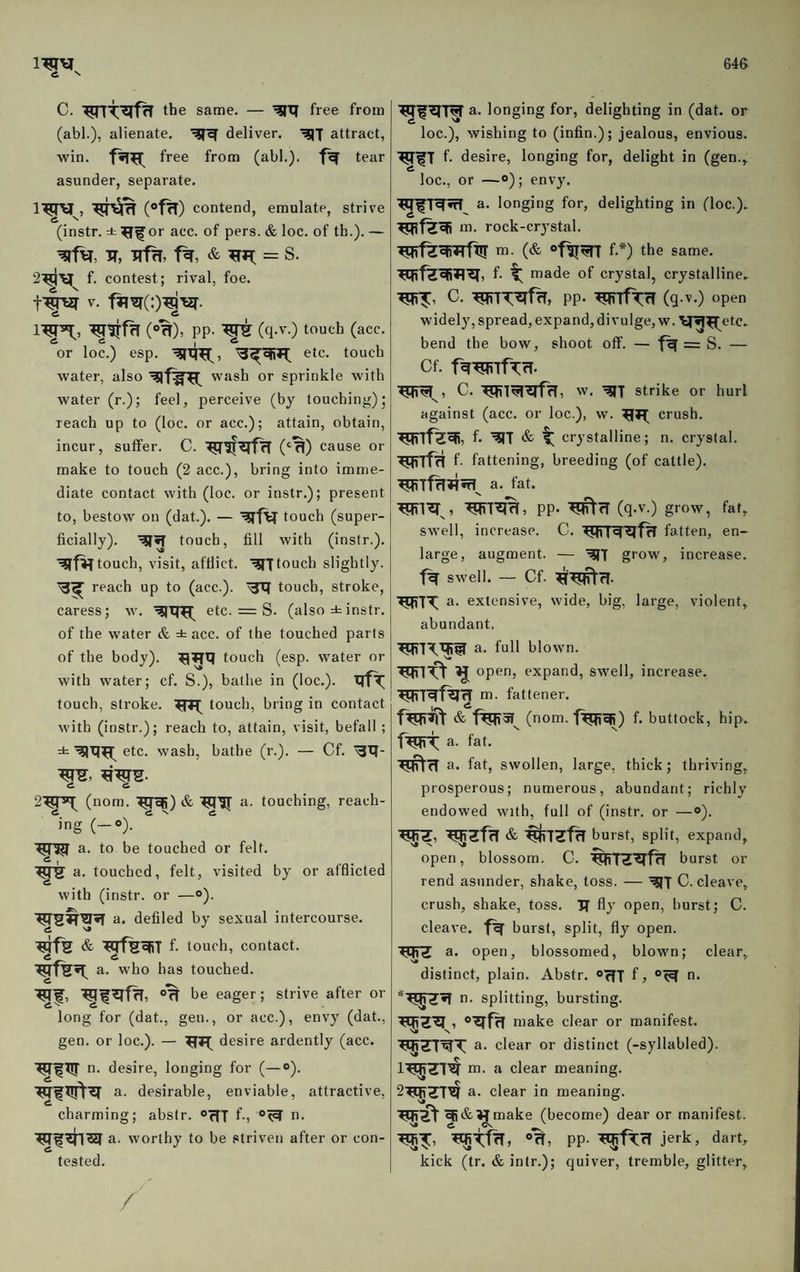 1स्पृध्
646
C. स्पारयति the same. — अप free from
(abl.), alienate. अव deliver. आ attract,
win. निस् free from (abl.). वि tear
asunder, separate.
1स्पृध्, स्पर्धते (°ति) contend, emulate, strive
(instr. ± सह or acc. of pers. & loc. of th.). —
अधि, प्र, प्रति, वि, & सम् = S.
2स्पृध् f. contest; rival, foe.
v.
1स्पृश्, स्पृशति (°ते), pp. स्पृष्ट (q.v.) touch (acc.
or loc.) esp. अपस्, उदकम् etc. touch
water, also अद्भिस् wash or sprinkle with
water (r.); feel, perceive (by touching);
reach up to (loc. or acc.); attain, obtain,
incur, suffer. C. स्पर्शयति (°ते) cause or
make to touch (2 acc.), bring into imme-
diate contact with (loc. or instr.); present
to, bestow on (dat.). — अधि touch (super-
ficially). अनु touch, fill with (instr.).
अभि touch, visit, afflict. आ touch slightly.
उद् reach up to (acc.). उप touch, stroke,
caress; w. अपस् etc. = S. (also ± instr.
of the water & ± acc. of the touched parts
of the body). समुप touch (esp. water or
with water; cf. S.), bathe in (loc.). परि
touch, stroke. सम् touch, bring in contact
with (instr.); reach to, attain, visit, befall;
± अपस् etc. wash, bathe (r.). — Cf. उप-
स्पृष्ट, संस्पृष्ट.
2स्पृश् (nom. स्पृक्) & स्पृश a. touching, reach-
ing (—°).
स्पृश्य a. to be touched or felt.
स्पृष्ट a. touched, felt, visited by or afflicted
with (instr. or —°).
स्पृष्टमैथुन a. defiled by sexual intercourse.
स्पृष्टि & स्पृष्टिका f. touch, contact.
स्पृष्टिन् a. who has touched.
स्पृह्, स्पृहयति, °ते be eager; strive after or
long for (dat., gen., or acc.), envy (dat.,
gen. or loc.). — सम् desire ardently (acc.
स्पृहण n. desire, longing for (—°).
स्पृहणीय a. desirable, enviable, attractive,
charming; abstr. °ता f., °त्व n.
स्पृहयाय्य a. worthy to be striven after or con-
tested.
स्पृहयालु a. longing for, delighting in (dat. or
loc.), wishing to (infin.); jealous, envious.
स्पृहा f. desire, longing for, delight in (gen.,
loc., or —°); envy.
स्पृहावन्त् a. longing for, delighting in (loc.).
स्फटिक m. rock-crystal.
स्फटिकमणि m. (& °शिला f.*) the same.
स्फटिकमय, f. ई made of crystal, crystalline.
स्फर्, C. स्फारयति, pp. स्फारित (q.v.) open
widely, spread, expand, divulge, w. धनुस् etc.
bend the bow, shoot off. — वि = S. —
Cf. विस्फारित.
स्फल्, C. स्फालयति, w. आ strike or hurl
against (acc. or loc.), w. सम् crush.
स्फाटिक, f. आ & ई crystalline; n. crystal.
स्फाति f. fattening, breeding (of cattle).
स्फातिमन्त् a. fat.
स्फाय्, स्फायते, pp. स्फीत (q.v.) grow, fat,
swell, increase. C. स्फावयति fatten, en-
large, augment. — आ grow, increase.
वि swell. — Cf. संस्फीत.
स्फार a. extensive, wide, big, large, violent,
abundant.
स्फारफुल्ल a. full blown.
स्फारी भू open, expand, swell, increase.
स्फावयितृ m. fattener.
स्फिगी & स्फिज् (nom. स्फिक्) f. buttock, hip.
स्फिर a. fat.
स्फीत a. fat, swollen, large, thick; thriving,
prosperous; numerous, abundant; richly
endowed with, full of (instr. or —°).
स्फुट्, स्फुटति & स्फोटति burst, split, expand,
open, blossom. C. स्फोटयति burst or
rend asunder, shake, toss. — आ C. cleave,
crush, shake, toss. प्र fly open, burst; C.
cleave. वि burst, split, fly open.
स्फुट a. open, blossomed, blown; clear,
distinct, plain. Abstr. °ता f, °त्व n.
*स्फुटन n. splitting, bursting.
स्फुटय्, °यति make clear or manifest.
स्फुटाक्षर a. clear or distinct (-syllabled).
1स्फुटार्थ m. a clear meaning.
2स्फुटार्थ a. clear in meaning.
स्फुटी कृ & भू make (become) dear or manifest.
स्फुर्, स्फुरति, °ते, pp. स्फुरित jerk, dart,
kick (tr. & intr.); quiver, tremble, glitter,